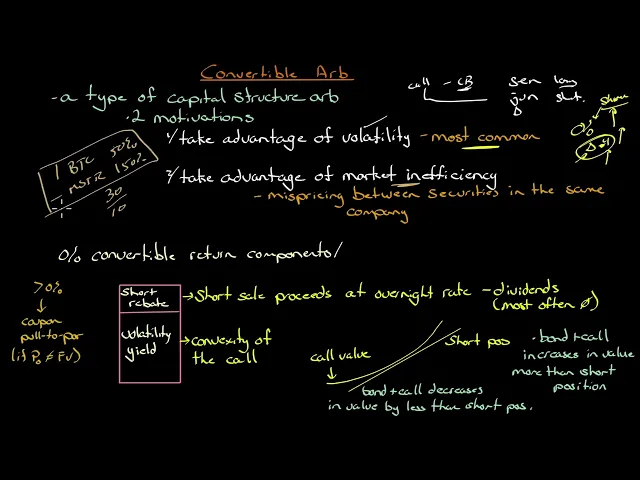 Convertible Arb
- a type of capital structure arb
. 2 motivations
1/ take advantage of volatility - most common
2/ take advantage of market inefficiency
- mispricing between securities in the same
company
call - CB
sen long
jun short
share
0%
1 BTC 50%
MSTR 150%
30
10
0% convertible return components/
>0%
coupon
pull-to-par
(if P₀ ≠ FV)
short
rebate
→ short sale proceeds at overnight rate - dividends
(most often ∅)
volatility
yield
→ convexity of
the call
call value
short pos
bond + call decreases
in value by less than short pos.
. bond + call
increases in value
more than short
position